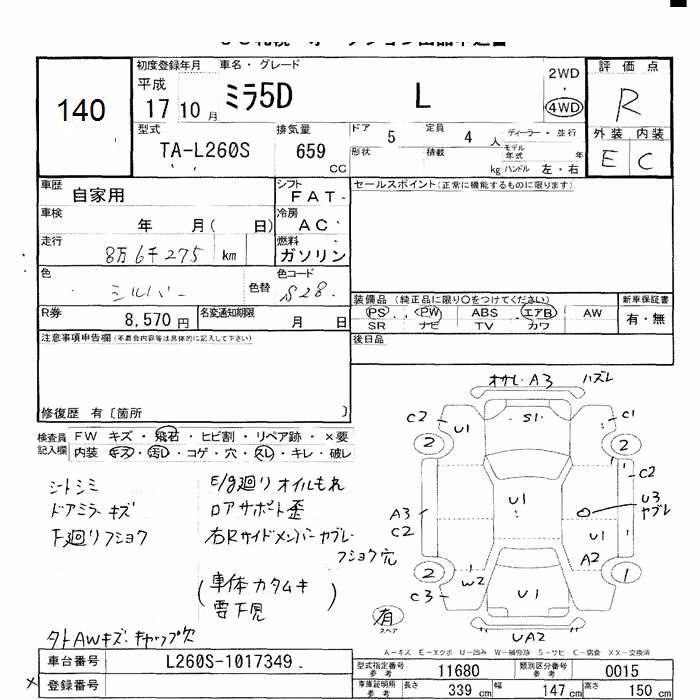 140
初度登録年月 車名・グレード
平成 17 10月 ミラ5D L 2WD 4WD
評価点 R
外装 内装
E C
型式 排気量 ドア 5 定員 4 人 ディーラー・並行
TA-L260S 659 CC 形状 積載 kg モデル年式 年
ハンドル 左・右
車歴 自家用 シフト FAT
セールスポイント(正常に機能するものに限ります)
車検 年 月( 日) 冷房 AC
走行 8万6千275 km 燃料 ガソリン
色 シルバー 色替 色コード S28
装備品 (純正品に限り○をつけてください) 新車保証書
PS PW ABS エアB AW 有・無
SR ナビ TV カワ
R券 8,570円 名変通知期限 月 日
後日品
注意事項申告欄(不具合内容等は具体的に記入して下さい)
修復歴 有〔箇所 〕
検査員記入欄 FW キズ・飛石・ヒビ割・リペア跡・×要
内装 キズ・汚レ・コゲ・穴・スレ・キレ・破レ
シートシミ E/g廻りオイルもれ
ドアミラーキズ コアサポート歪
下廻りフショク 右Rサイドメンバーヤブレ
フショク穴
(車体カタムキ
雪下見)
外AWキズ・キャップ欠
オサレ A3 ハズレ
C2 U1 S1 C1
2 2
C2
A3 C2 U1 U3 ヤブレ
U1
A2
2 W2 1
C3 U1
有 スペア UA2
A-キズ E-エクボ U-凹み W-補修跡 S-サビ C-腐食 XX-交換済
車台番号 L260S-1017349
登録番号
型式指定番号 参考 11680 類別区分番号 参考 0015
車庫証明用 参考 長さ 339 cm 幅 147 cm 高さ 150 cm